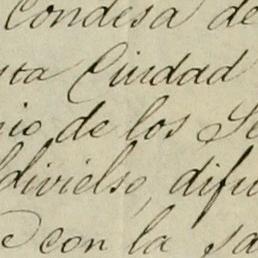 Condesa de
sta Ciudad
nio de los Se
ldivielso, difu
e con la sa